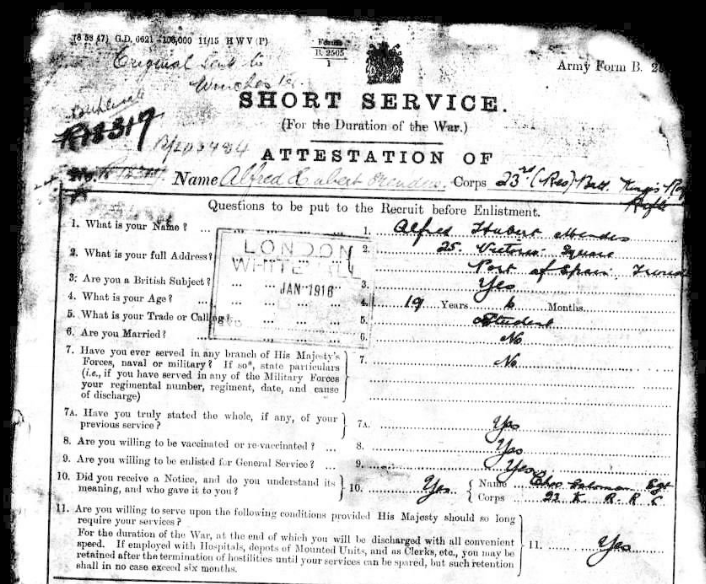 (8 38 47) G.D. 6621 100,000 11/15 H W V (P)
Forms
B. 2505
1
Original sent to
Army Form B.
Winchester
SHORT SERVICE.
(For the Duration of the War.)
R18317
ATTESTATION OF
Name Alfred Hubert Mendes Corps 23rd (Res) Batt. King's Roy
Rifle
Questions to be put to the Recruit before Enlistment.
1. What is your Name? ... 1. Alfred Hubert Mendes
2. What is your full Address? 2. 25 Victoria Square
Port of Spain Trinid
3. Are you a British Subject? ... 3. Yes
4. What is your Age? ... 4. 19 Years 6 Months
5. What is your Trade or Calling? ... 5. Student
6. Are you Married? ... 6. No
LONDON
WHITEHALL
JAN 1916
7. Have you ever served in any branch of His Majesty's
Forces, naval or military? If so*, state particulars
(i.e., if you have served in any of the Military Forces
your regimental number, regiment, date, and cause
of discharge)
7. No
7A. Have you truly stated the whole, if any, of your
previous service?
7A. Yes
8. Are you willing to be vaccinated or re-vaccinated? ... 8. Yes
9. Are you willing to be enlisted for General Service? ... 9. Yes
10. Did you receive a Notice, and do you understand its
meaning, and who gave it to you?
10. Yes { Name Chas Saloman Sgt
Corps 23 K. R. R. C
11. Are you willing to serve upon the following conditions provided His Majesty should so long
require your services?
For the duration of the War, at the end of which you will be discharged with all convenient
speed. If employed with Hospitals, depots of Mounted Units, and as Clerks, etc., you may be
retained after the termination of hostilities until your services can be spared, but such retention
shall in no case exceed six months.
11. Yes